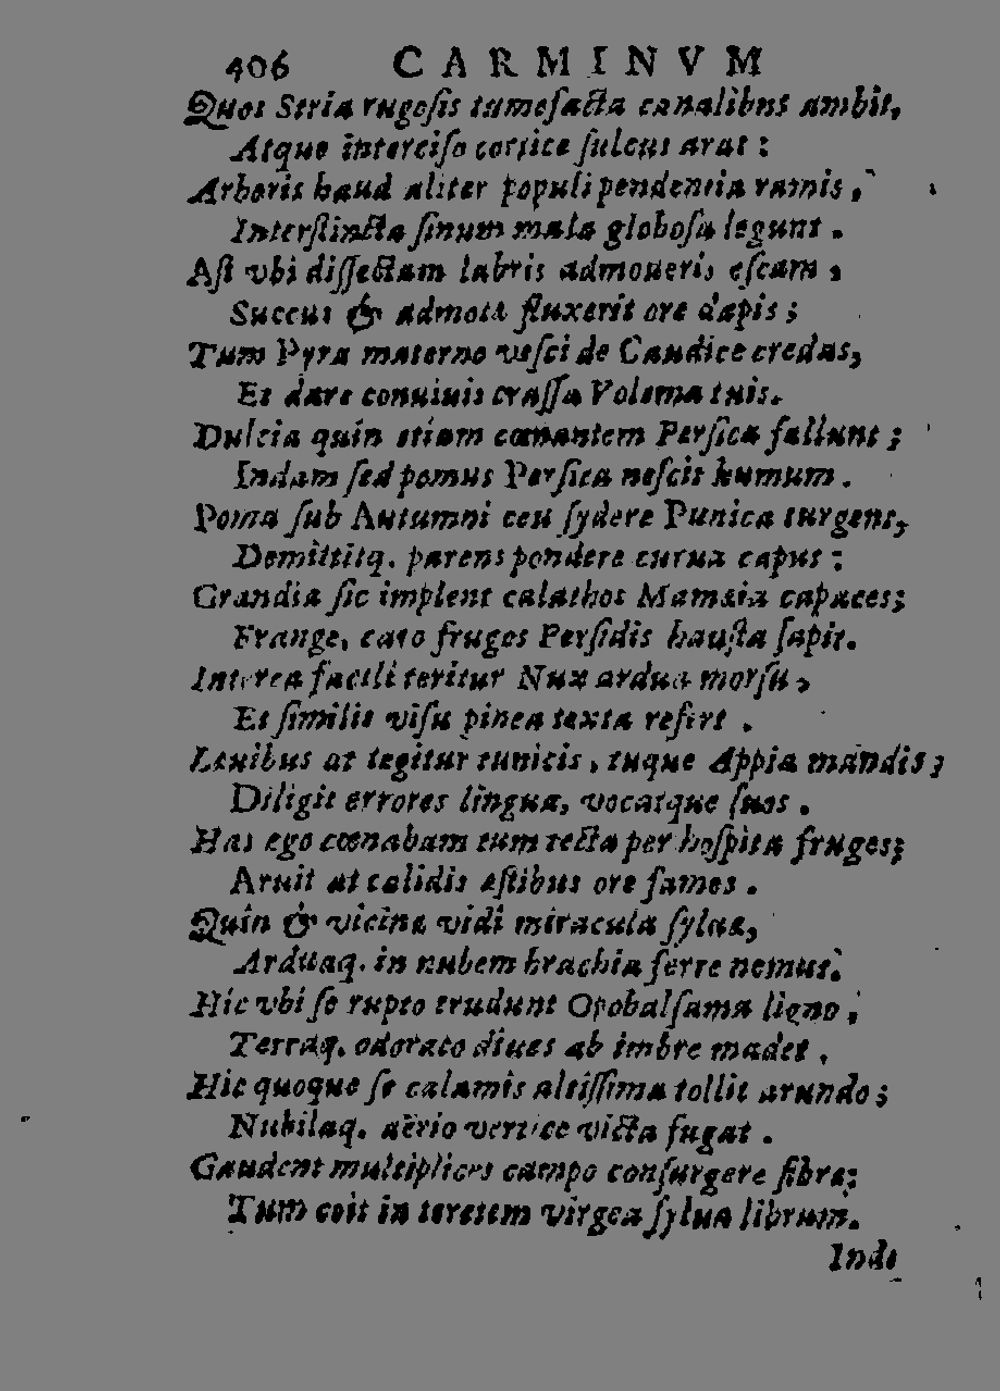 406 CARMINVM
Quos Stria rugosis tumefacta canalibus ambit,
Atque interciso cortice sulcus arat:
Arboris haud aliter populi pendentia ramis,
Interstincta sinum mala globosa legunt.
Ast vbi dissectam labris admoueris escam,
Succus & admota fluxerit ore dapis;
Tum Pyra materno vesci de Caudice credas,
Et dare conuiuis crassa Volema tuis.
Dulcia quin etiam cœnantem Persica fallunt;
Indam sed pomus Persica nescit humum.
Poma sub Autumni ceu sydere Punica turgent,
Demittitq. parens pondere curua caput:
Grandia sic implent calathos Mamæia capaces;
Frange, caro fruges Persidis hausta sapit.
Interea facili teritur Nux ardua morsu,
Et similis visu pinea texta refert.
Leuibus at tegitur tunicis, tuque Appia mandis;
Diligit errores lingua, vocatque suos.
Has ego cœnabam tum tecta per hospita fruges;
Aruit at calidis æstibus ore fames.
Quin & vicinæ vidi miracula syluæ,
Arduaq. in nubem brachia ferre nemus.
Hic vbi se rupto trudunt Opobalsama ligno,
Terraq. odorato diues ab imbre madet,
Hic quoque se calamis altissima tollit arundo;
Nubilaq. aërio vertice victa fugat.
Gaudent multiplices campo consurgere fibræ;
Tum coit in teretem virgea sylua librum.
Inde